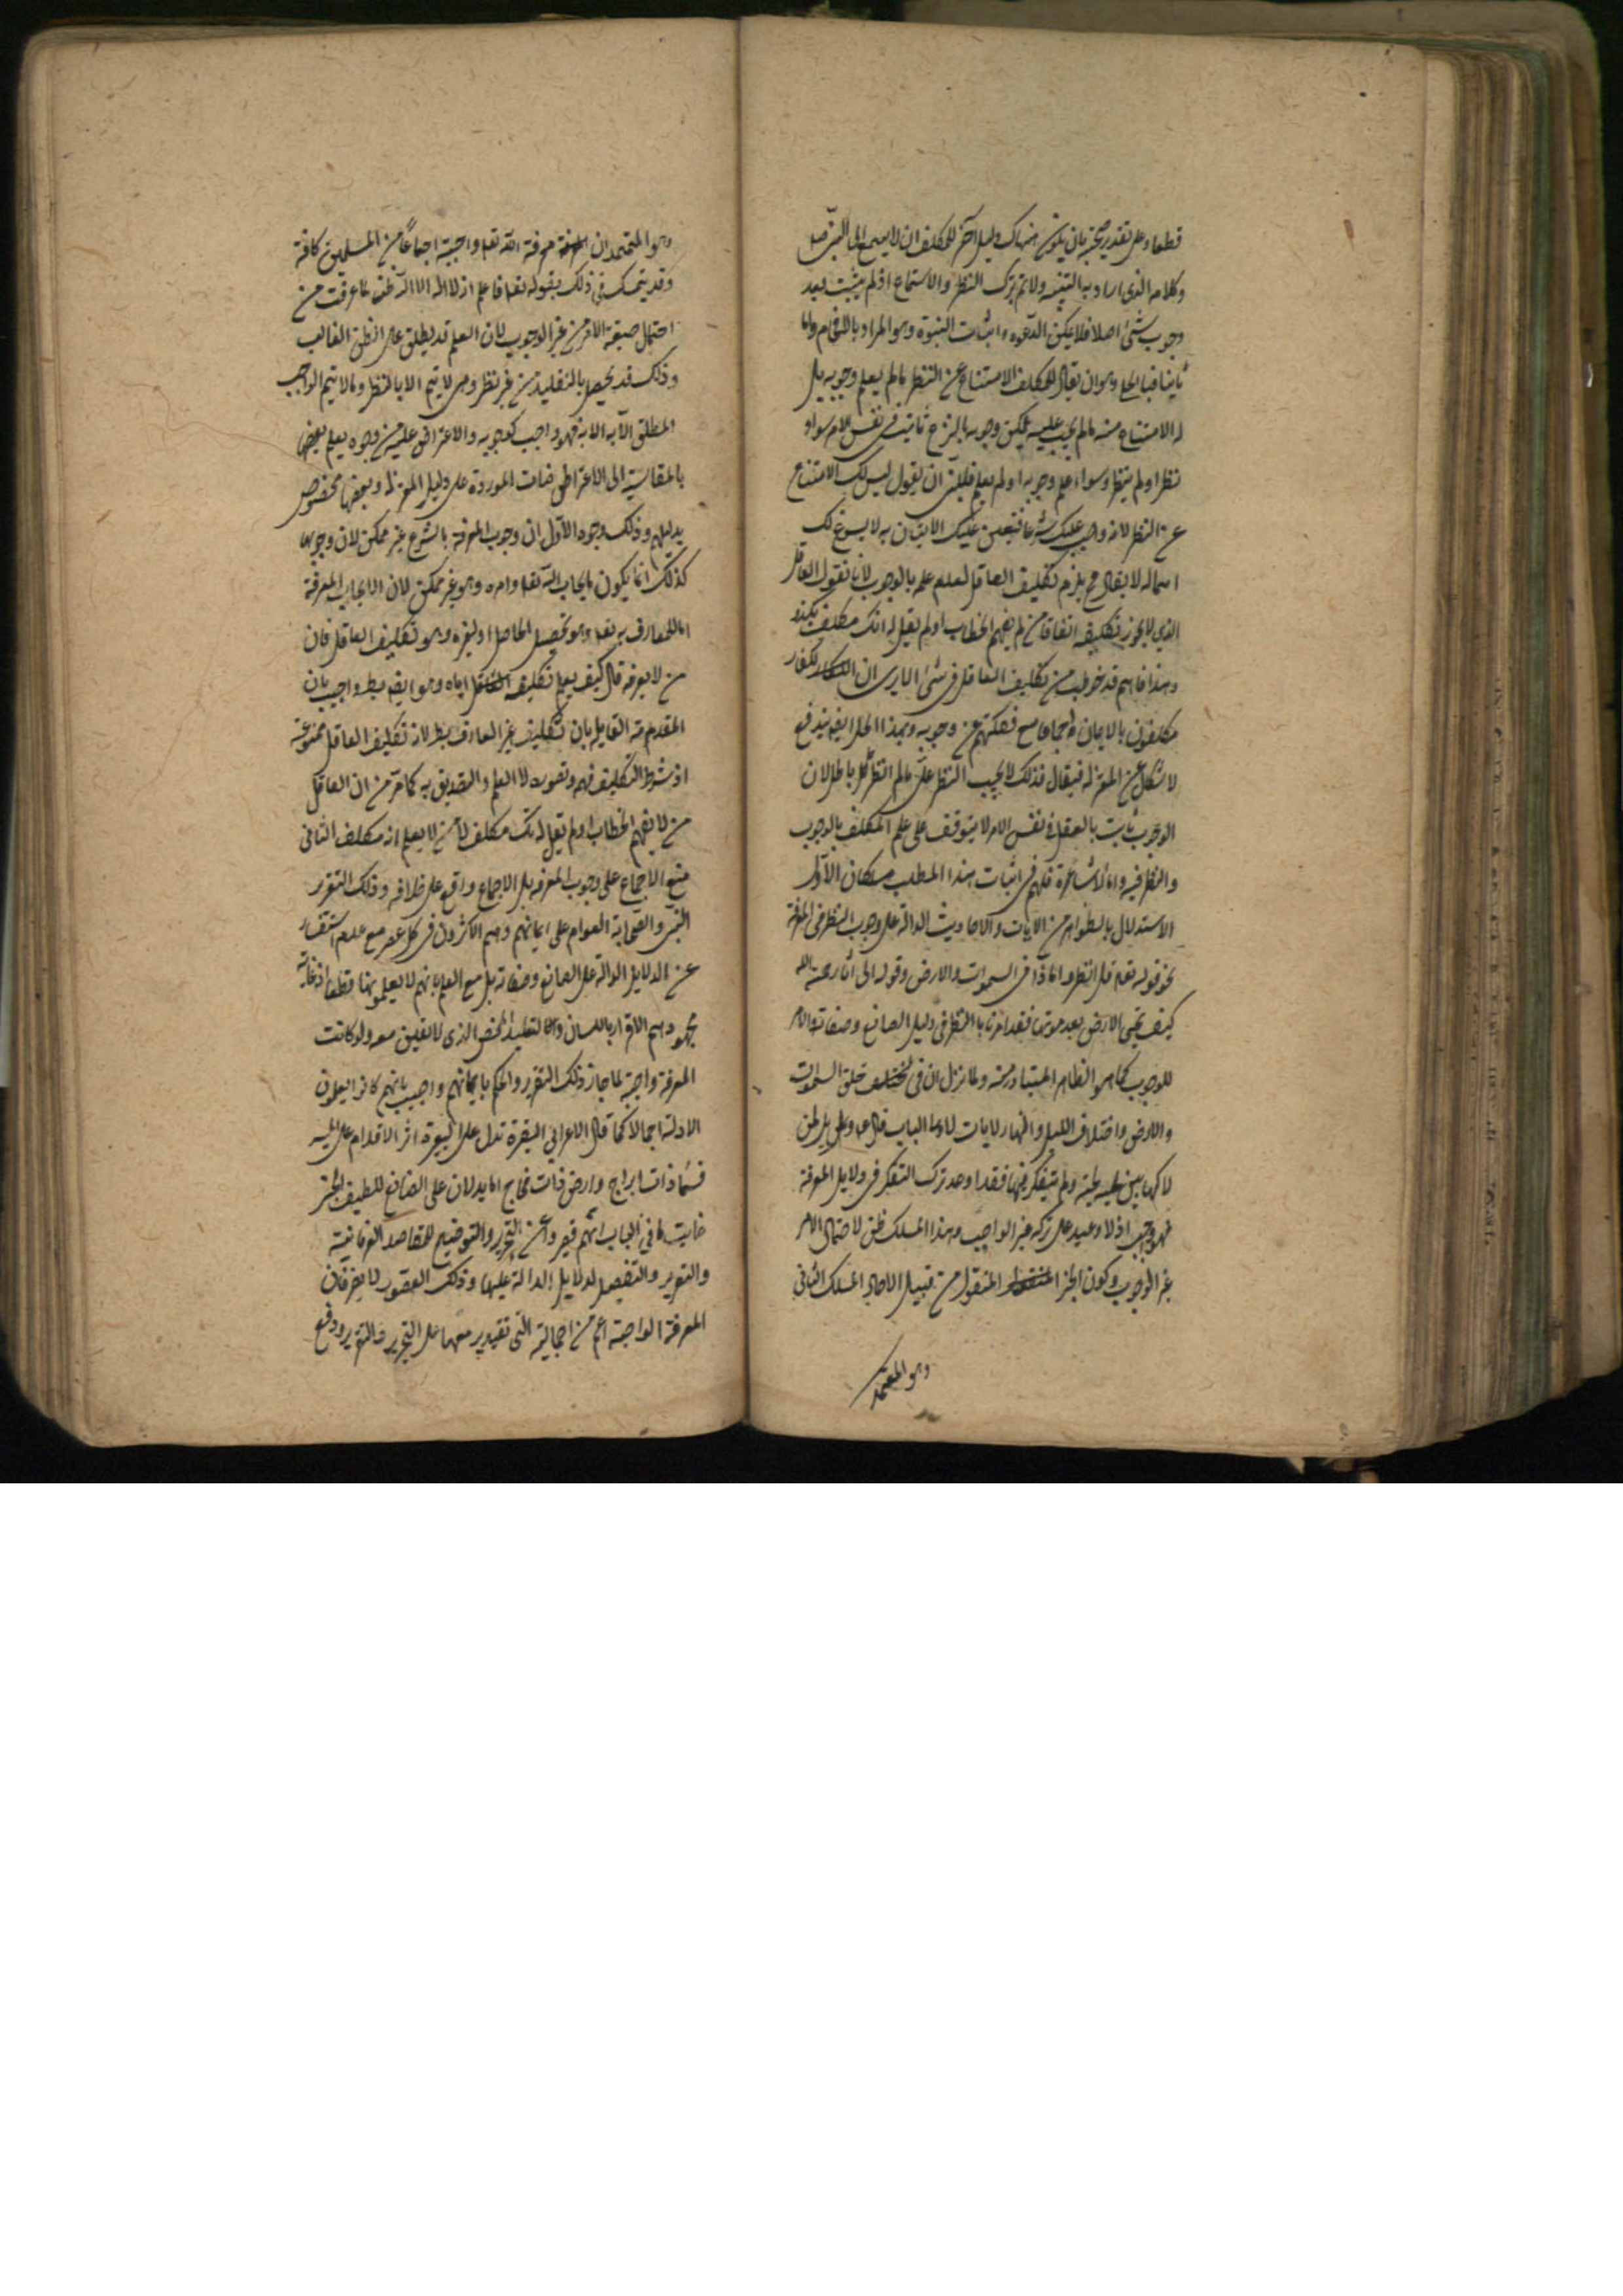 قطعا وعلى تقدير صحته بان يكون هناك دليل آخر للمكلف ان لا يسمع الى النبي صل
وكلامه الذي اراد به التنبيه ولا ياثم بترك النظر والاستماع اذ لم يثبت بعد
وجوب شئ اصلا فلا يمكن الدعوه واثبات النبوة وهو المراد بالافحام واما
ثانيا فبالحل وهو ان يقال للمكلف الامتناع عن النظر ما لم يعلم وجوبه بل
له الامتناع منه ما لم يجب عليه لكن وجوبه بالشرع ثابت في نفس الامر سواء
نظر او لم ينظر وسواء علم وجوبه او لم يعلم فللنبي ان يقول ليس لك الامتناع
عن النظر لانه واجب عليك شرعا فتعين عليك الاتيان به لا يسوغ لك
اهماله لا يقال ح يلزم تكليف الغافل لعدم علمه بالوجوب لانا نقول الغافل
الذي لا يجوز تكليفه اتفاقا من لم يفهم الخطاب او لم يقل له انك مكلف بكذا
وهذا فاهم قد خوطب من تكليف الغافل في شئ الا يرى ان الكفار
مكلفون بالايمان اجماعا مع غفلتهم عن وجوبه وبهذا الحل ايضا يندفع
الاشكال عن المعتزلة فيقال قولك لا يجب النظر علي ما لم انظر باطل لان
الوجوب ثابت بالعقل في نفس الامر لا يتوقف على علم المكلف بالوجوب
والنظر فيه واما الاشاعرة فلهم في اثبات هذا المطلب مسلكان الاول
الاستدلال بالظواهر من الآيات والاحاديث الدالة على وجوب النظر في المعرفة
نحو قوله تعم قل انظروا ماذا في السموات والارض وقوله الى آثار رحمة الله
كيف يحيى الارض بعد موتها فقد امرنا بالنظر في دليل الصانع وصفاته والامر
للوجوب كما هو الظاهر المتبادر منه ولما نزل ان في خلق السموات
والارض واختلاف الليل والنهار لآيات لاولى الالباب قال عم ويل لمن
لاكها بين لحييه ولم يتفكر فيها فقد اوعد بترك التفكر في دلايل المعرفة
فهو واجب اذ لا وعيد على ترك غير الواجب وهذا المسلك ظني لاحتمال الامر
غير الوجوب وكون الخبر المنقول من قبيل الآحاد المسلك الثاني
وهو المعتمد
وهو المعتمد ان معرفة الله تعم واجبة اجماعا من المسلمين كافة
وقد يتمسك في ذلك بقوله تعم فاعلم انه لا اله الا الله ظني لما عرفت من
احتمال صيغة الامر غير الوجوب لان العلم قد يطلق على الظن الغالب
وذلك قد يحصل بالتقليد من غير نظر وهي لا يتم الا بالنظر وما لا يتم الواجب
المطلق الا به فهو واجب كوجوبه والاعتراض عليه من وجوه يعلم بعضها
بالمقايسة الى الاعتراضات الموردة على دليل المعتزلة وبعضها مخصوص
بدليلهم وذلك وجوه الاول ان وجوب المعرفة بالشرع غير ممكن لان وجوبها
كذلك انما يكون بايجاب الله تعم وامره وهو غير ممكن لان ايجاب المعرفة
اما للعارف به تعم وهو تحصيل الحاصل او لغيره وهو تكليف الغافل فان
من لا يعرفه تعالى كيف يعلم تكليفه اياه وهو ايضا بط واجيب بان
المقدمة القايلة بان تكليف غير العارف بط لانه تكليف الغافل ممنوعة
اذ شرط التكليف فهمه وتصوره لا العلم والتصديق به كما مر من ان الغافل
من لا يفهم الخطاب او لم يقل له انك مكلف لا من لا يعلم انه مكلف الثاني
منع الاجماع على وجوب المعرفة بل الاجماع واقع على خلافه وذلك لتقرير
النبي والصحابة العوام على ايمانهم وهم الاكثرون في كل عصر مع عدم استفسار
عن الدلايل الدالة على الصانع وصفاته بل مع العلم بانهم لا يعلمونها قطعا اذ غاية
مجهودهم الاقرار باللسان والتقليد المحض الذي لا يقين معه ولو كانت
المعرفة واجبة لما جاز ذلك التقرير والحكم بايمانهم واجيب بانهم كانوا يعلمون
الادلة اجمالا كما قال الاعرابي البعرة تدل على البعير واثر الاقدام على المسير
فسماء ذات ابراج وارض ذات فجاج اما يدلان على الصانع اللطيف الخبير
غايت ما في الباب انهم قصروا عن التحرير والتوضيح للمقاصد العرفانية
والتقرير والتفصيل لدلايل الدالة عليها وذلك القصور لا يضر فان
المعرفة الواجبة اعم من اجمالية التي لا يقتدر معها على التحرير والتقرير ودفع